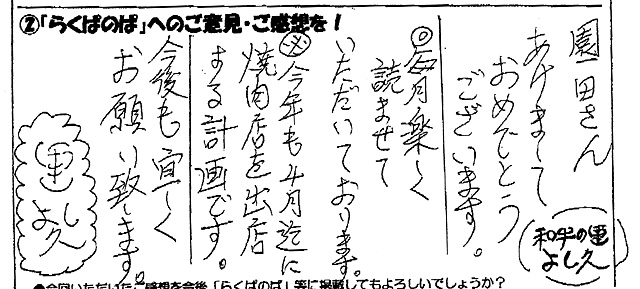 ②「らくぱのぱ」へのご意見・ご感想を！
園田さん
あけまして
おめでとう
ございます。
和牛の里
よし久
◎毎月楽しく
読ませて
いただいております。
㊙今年も4月迄に
焼肉店を出店
する計画です。
今後も宜しく
お願い致します。
里
よし久
●今回いただいたご感想を今後「らくぱのぱ」等に掲載してもよろしいでしょうか？